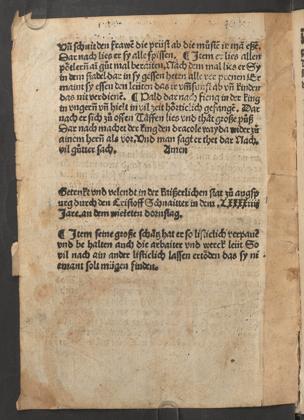 Vñ schnid den frawẽ die prüst ab die můstẽ ir mã eßẽ.
Dar nach lies er sy alle spissen. ¶ Item er lies allen
petlern ai gůt mal beraiten. Nach dem mal lies er Sy
in dem stadel dar in sy gessen heten alle ver prenen Er
maint sy essen den leüten das ir vmsunst ab vñ kinden
das nit verdienẽ. ¶ Bald dar nach fieng in der king
in vngern vñ hielt in vil zeit hörticlich gefangẽ. Dar
nach er sich zů offen Tassen lies vnd thät große půß
Dar nach machet der king den dracole wayda wider zů
ainem herñ als vor. Vnd man sagt er thet dar Nach.
vil gůtter sach. Amen
Getruckt vnd velendt in der Kaißerlichen stat zů augsp
urg durch den Cristoff Schnaitter in dem. LXXXXiiij
Jare. an dem dornstag.
¶ Item seine große schätz hat er so listiclich verpauẽ
vnd be halten auch die arbaiter vnd werck leüt So
vil nach ain ander listiclich lassen ertöden das sy ni
emant solt mügen finden.